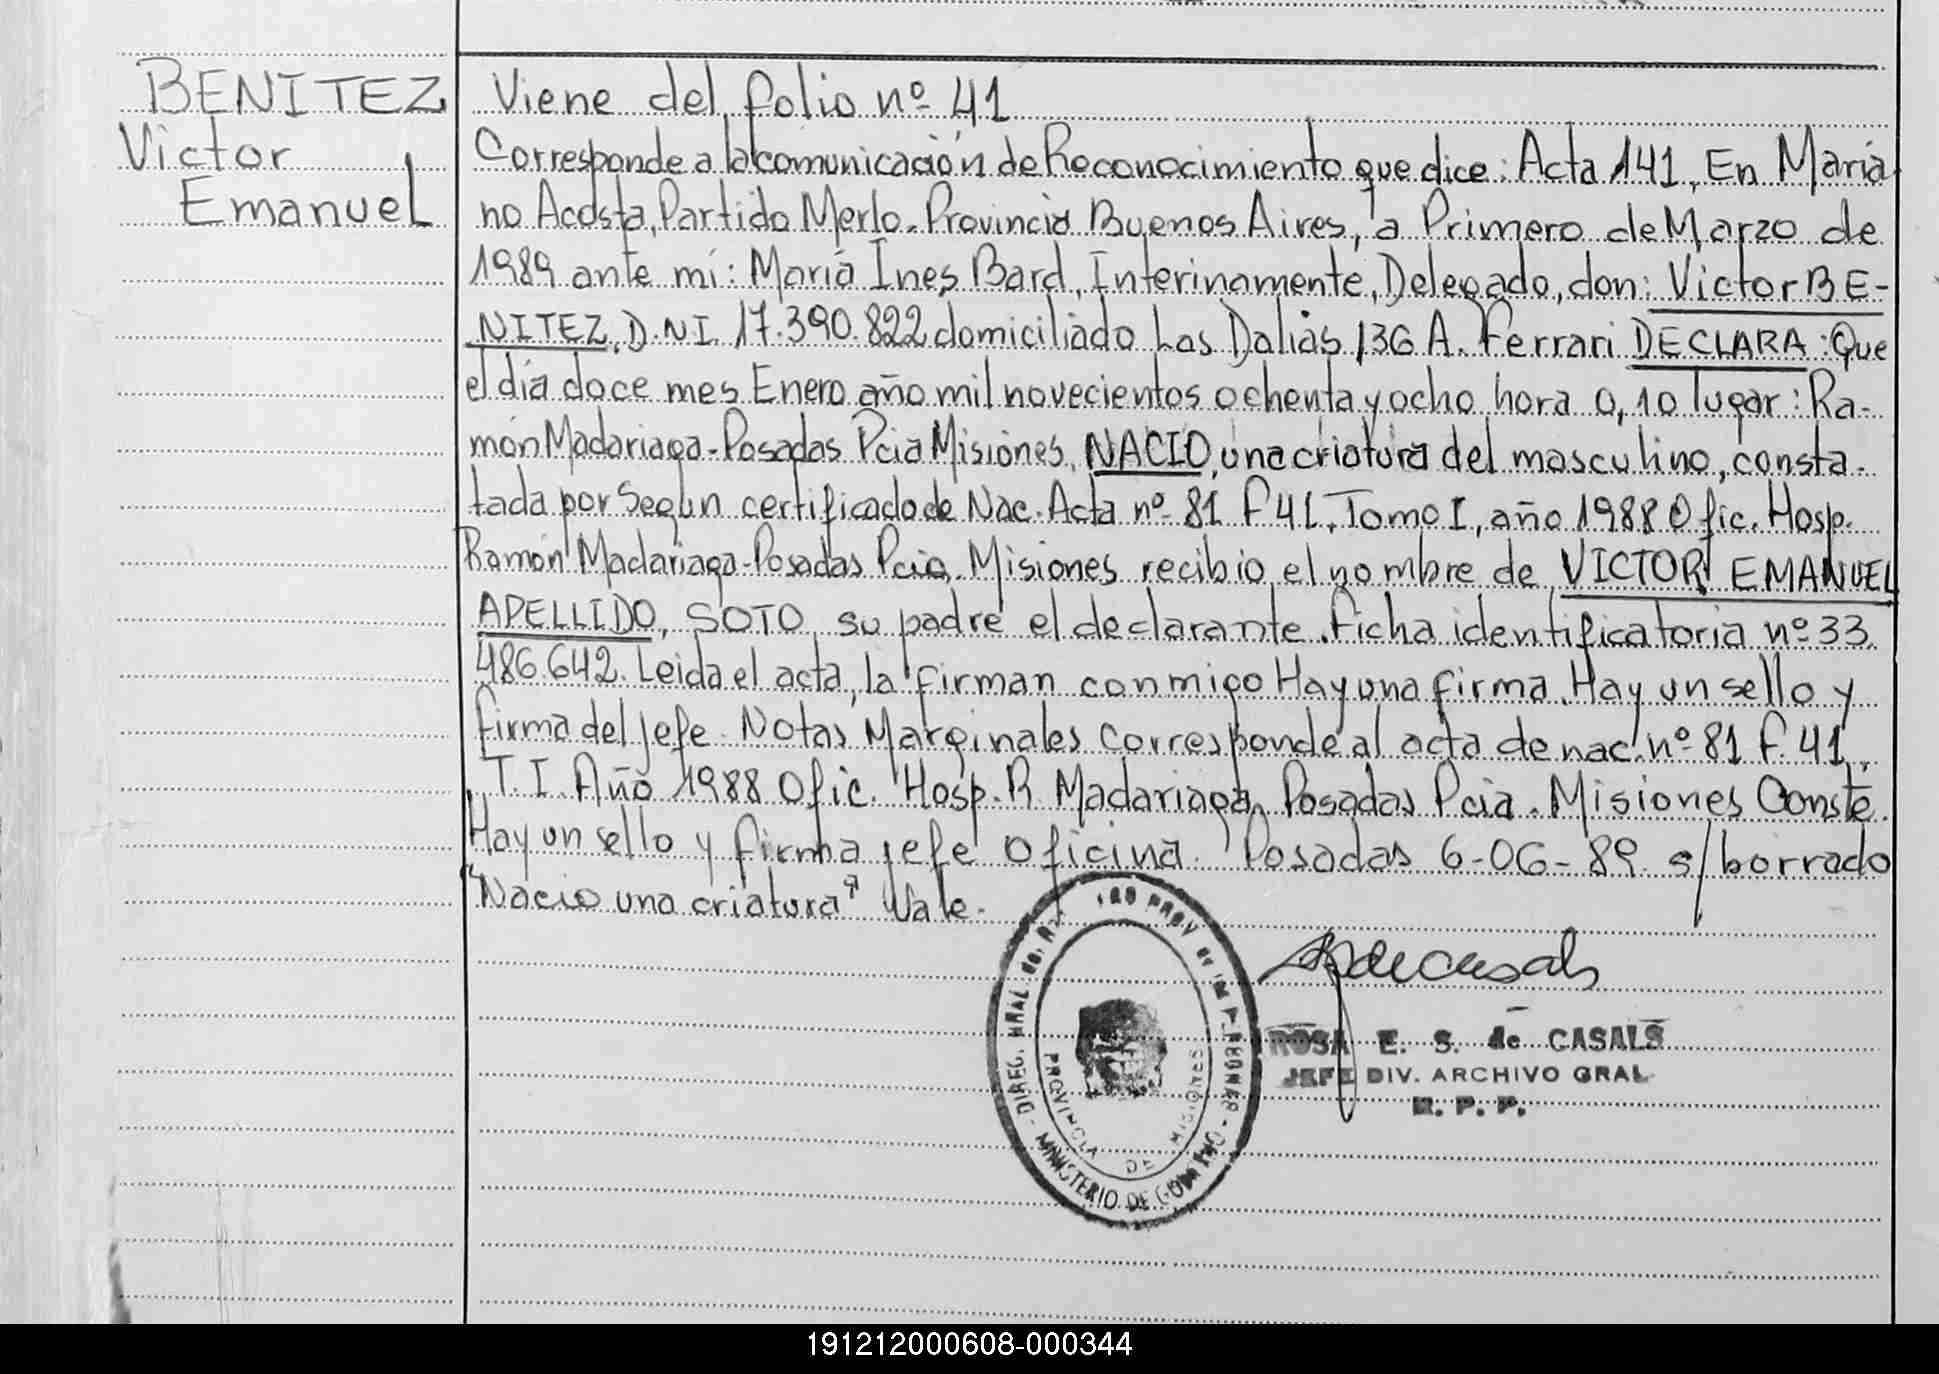 BENITEZ
Victor
Emanuel
Viene del folio nº 41
Corresponde a la comunicación de Reconocimiento que dice: Acta 141, En Maria
no Acosta, Partido Merlo. Provincia Buenos Aires, a Primero de Marzo de
1989 ante mi: Maria Ines Bard, Interinamente, Delegado, don: Victor BE-
NITEZ, D.NI. 17.390.822 domiciliado Las Dalias 136 A. Ferrari DECLARA: Que
el día doce mes Enero año mil novecientos ochenta y ocho hora 0,10 lugar: Ra-
món Madariaga-Posadas Pcia Misiones, NACIO, una criatura del masculino, consta-
tada por Según certificado de Nac. Acta nº 81 F 41, Tomo I, año 1988 Ofic. Hosp.
Ramón Madariaga-Posadas Pcia. Misiones recibio el nombre de VICTOR EMANUEL
APELLIDO, SOTO, su padre el declarante. Ficha identificatoria nº 33.
486.642. Leida el acta, la firman conmigo Hay una firma. Hay un sello y
firma del jefe. Notas Marginales corresponde al acta de nac. nº 81 F. 41,
T. I. Año 1988 Ofic. Hosp. R Madariaga, Posadas Pcia. Misiones Conste.
Hay un sello y firma jefe Oficina. Posadas 6-06-89. s/borrado
"Nacio una criatura" Vale.
DIREC. GRAL del R PROV de las PERSONAS - MINISTERIO DE GOBIERNO -
PROVINCIA DE MISIONES
ROSA E. S. de CASALS
JEFE DIV. ARCHIVO GRAL
R. P. P.
191212000608-000344